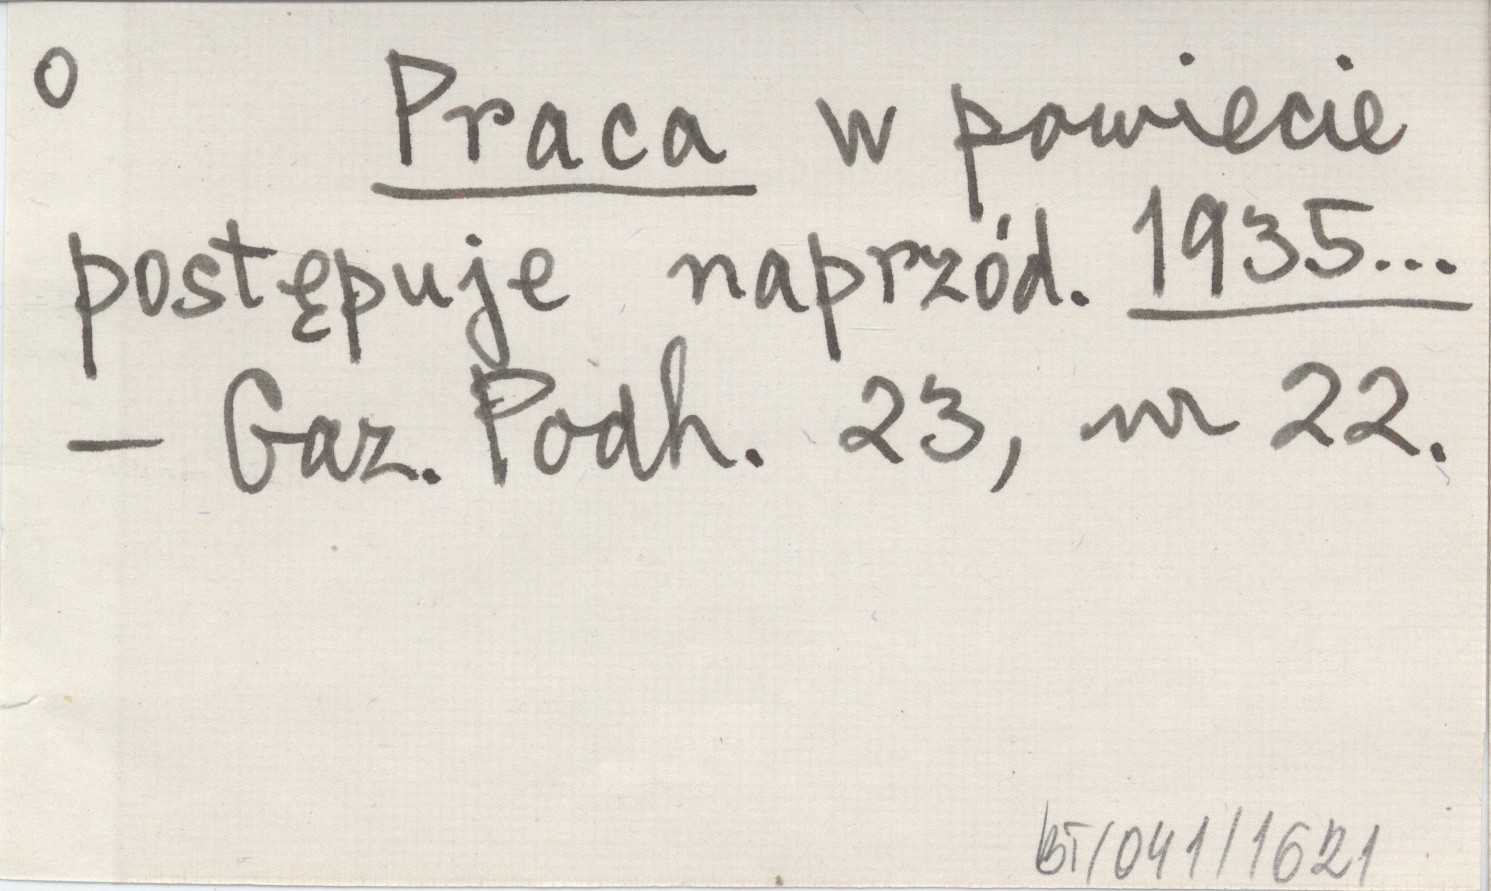 o Praca w powiecie
postępuje naprzód. 1935...
– Gaz. Podh. 23, nr 22.
BT/041/1621